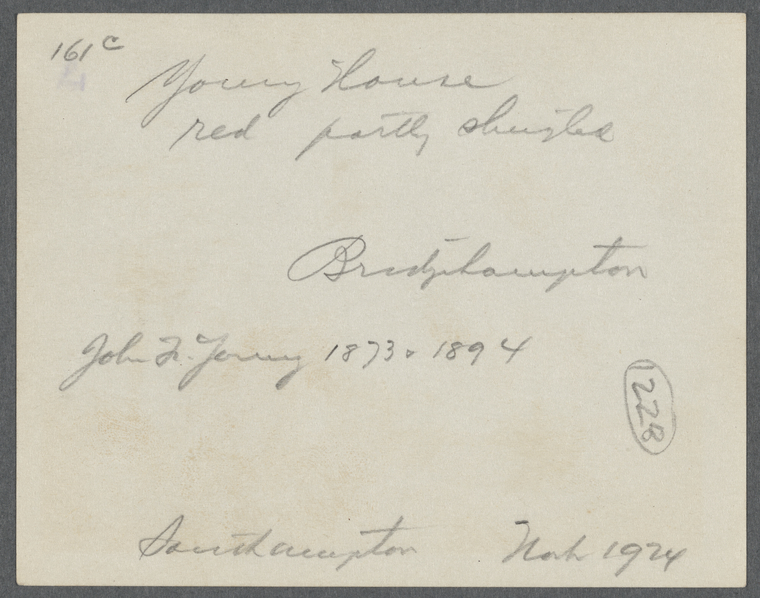 161 c
Young House
red partly shingled
Bridgehampton
John F. Young 1873 & 1894
1228
Southampton 1924